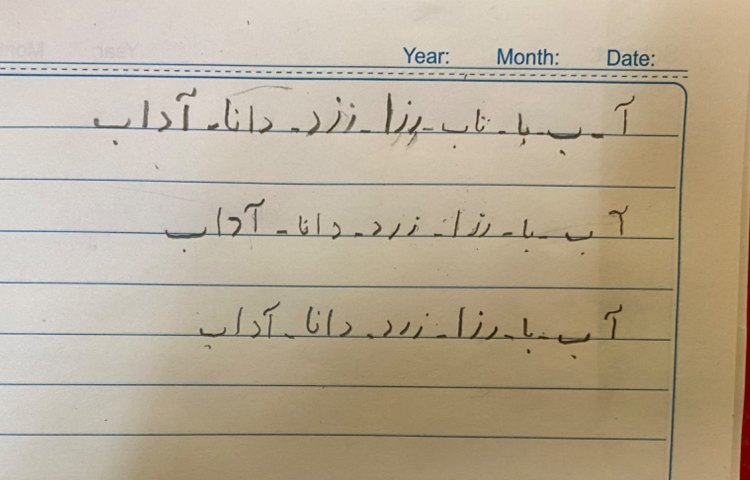 Year: Month: Date:
آ - ب - با - تاب - رزا - زرد - دانا - آداب
آ ب - با - رزا - زرد - دانا - آداب
آ ب - با - رزا - زرد - دانا - آداب